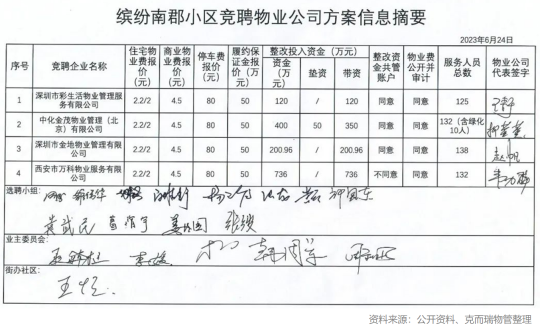 缤纷南郡小区竞聘物业公司方案信息摘要
2023年6月24日
序号 竞聘企业名称 住宅物业费报价（元） 商业物业费报价（元） 停车费报价（元） 履约保证金报价（万元） 整改投入资金（万元） 整改资金共管账户 物业费公开并审计 服务人员总数 物业公司代表签字
资金（万元） 垫资 带资
1 深圳市彩生活物业管理服务有限公司 2.2/2 4.5 80 50 120 / 120 同意 同意 125
2 中化金茂物业管理（北京）有限公司 2.2/2 4.5 80 50 400 50 350 同意 同意 132（含绿化10人）
3 深圳市金地物业管理有限公司 2.2/2 4.5 80 50 200.96 / 200.96 同意 同意 138
4 西安市万科物业服务有限公司 2.2/2 4.5 80 50 736 / 736 不同意 同意 132
选聘小组：
业主委员会：
街办社区：
资料来源：公开资料、克而瑞物管整理